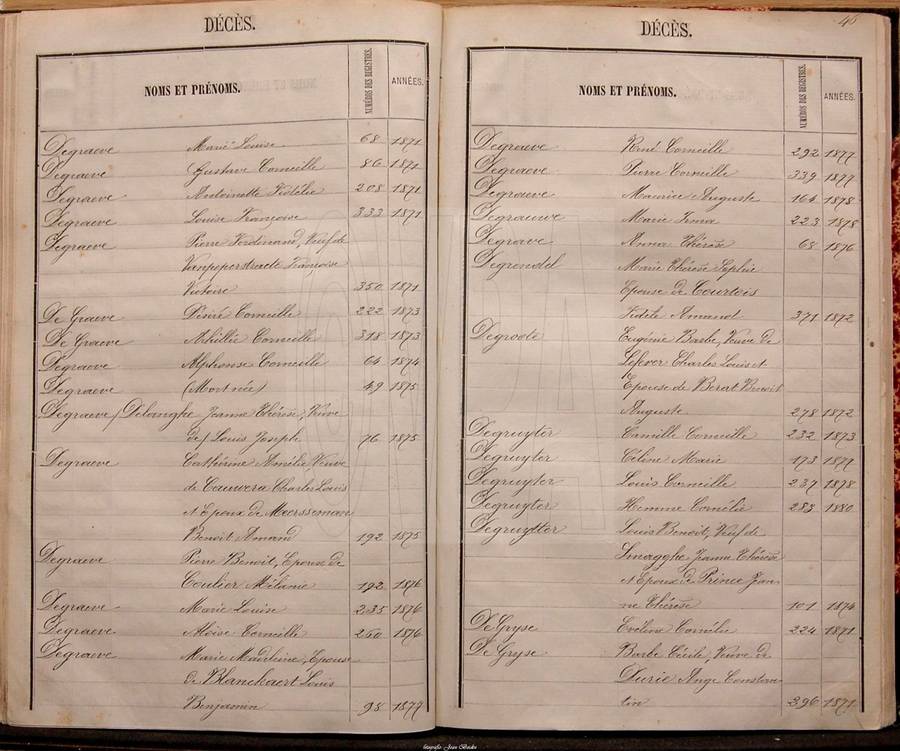 DÉCÈS.
NOMS ET PRÉNOMS. NUMÉROS DES REGISTRES. ANNÉES.
Degraeve Marie Louise 68 1871
Degraeve Gustave Corneille 86 1871
Degraeve Antoinette Fidélie 208 1871
Degraeve Louise Françoise 333 1871
Degraeve Pierre Ferdinand, Veuf de
Vanpeperstraete Françoise
Victoire 350 1871
De Graeve Désiré Corneille 222 1873
De Graeve Achillie Corneille 318 1873
Degraeve Alphonse Corneille 64 1874
Degraeve (Mort née) 49 1875
Degraeve / Delanghe Jeanne Thérèse, Veuve
de / Louis Joseph 76 1875
Degraeve Cathérine Amélie, Veuve
de Cauwera Charles Louis
et Epoux de Maerssemane
Benoit Amand 192 1875
Degraeve Pierre Benoit, Epoux de
Coulier Mélanie 192 1876
Degraeve Marie Louise 235 1876
Degraeve Aloïse Corneille 260 1876
Degraeve Marie Madeleine, Epouse
de Blanckaert Louis
Benjamin 98 1877
46
DÉCÈS.
NOMS ET PRÉNOMS. NUMÉROS DES REGISTRES. ANNÉES.
Degraeve René Corneille 292 1877
Degraeve Pierre Corneille 339 1877
Degraeve Maurice Auguste 164 1878
Degraeuwe Marie Irma 223 1878
Degrave Anna Thérèse 68 1876
Degrendel Marie Thérèse Sophie
Epouse de Courtois
Fidèle Amand 371 1872
Degroote Eugénie Barbe, Veuve de
Lefever Charles Louis et
Epouse de Berat Benoit
Auguste 278 1872
Degruyter Camille Corneille 232 1873
Degruyter Céline Marie 193 1877
Degruyter Louis Corneille 237 1878
Degruyter Hemme Cornélie 283 1880
Degruytter Louis Benoit, Veuf de
Smagghe Jeanne Thérèse
et Epoux de Prince Jean-
ne Thérèse 101 1874
De Gryse Evelina Cornélie 224 1871
De Gryse Barbe Cécile, Veuve de
Durie Ange Constan-
tin 396 1871